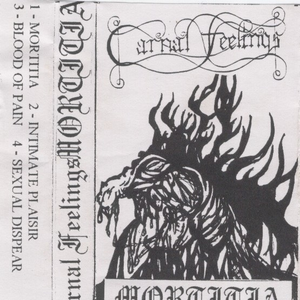 1 - MORTITIA 2 - INTIMATE PLAISIR
3 - BLOOD OF PAIN 4 - SEXUAL DISPEAR
rnal Feelings MORTITIA
Carnal Feelings
MORTITIA